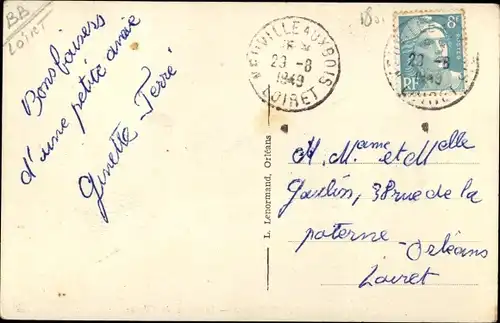 BB
LOIRET
Bons baisers
d'une petite amie
Ginette Terré
L. Lenormand, Orléans
NEUVILLE AUX BOIS
23 -8
1949
LOIRET
8F
POSTES
RF
NEUVILLE AUX BOIS
23 -8
1949
LOIRET
M. Mame et Melle
Gaulin, 38 rue de la
paterne - Orléans
Loiret